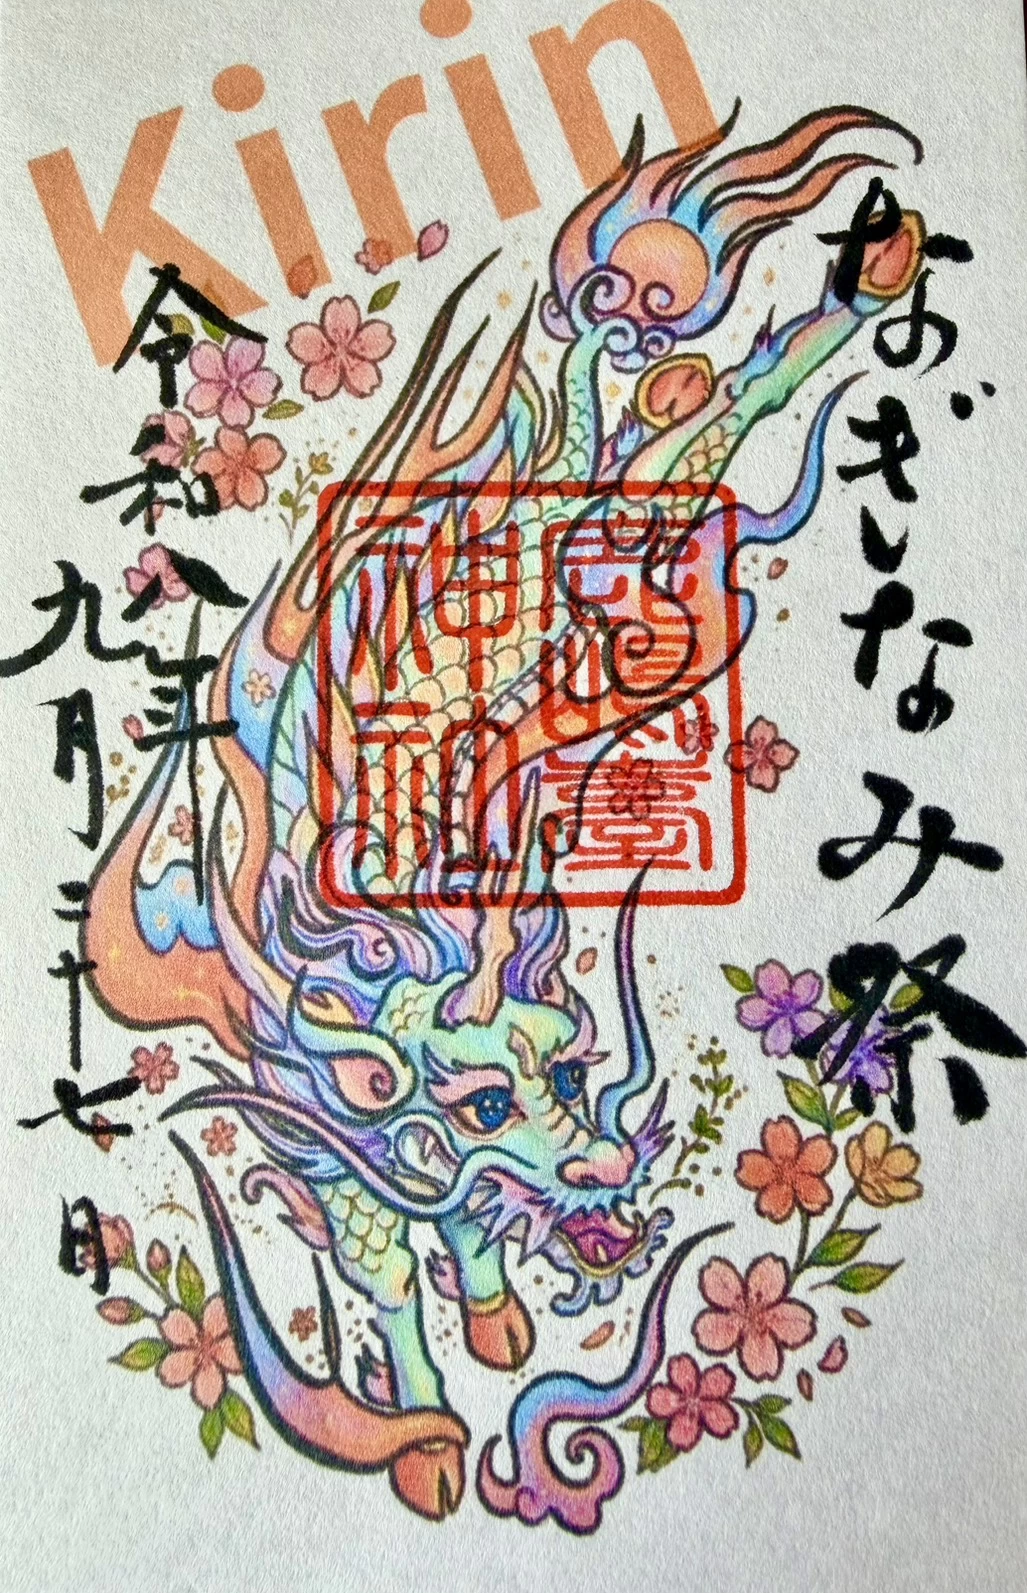 Kirin
なぎなみ祭
神社
令和八年
九月二十七日